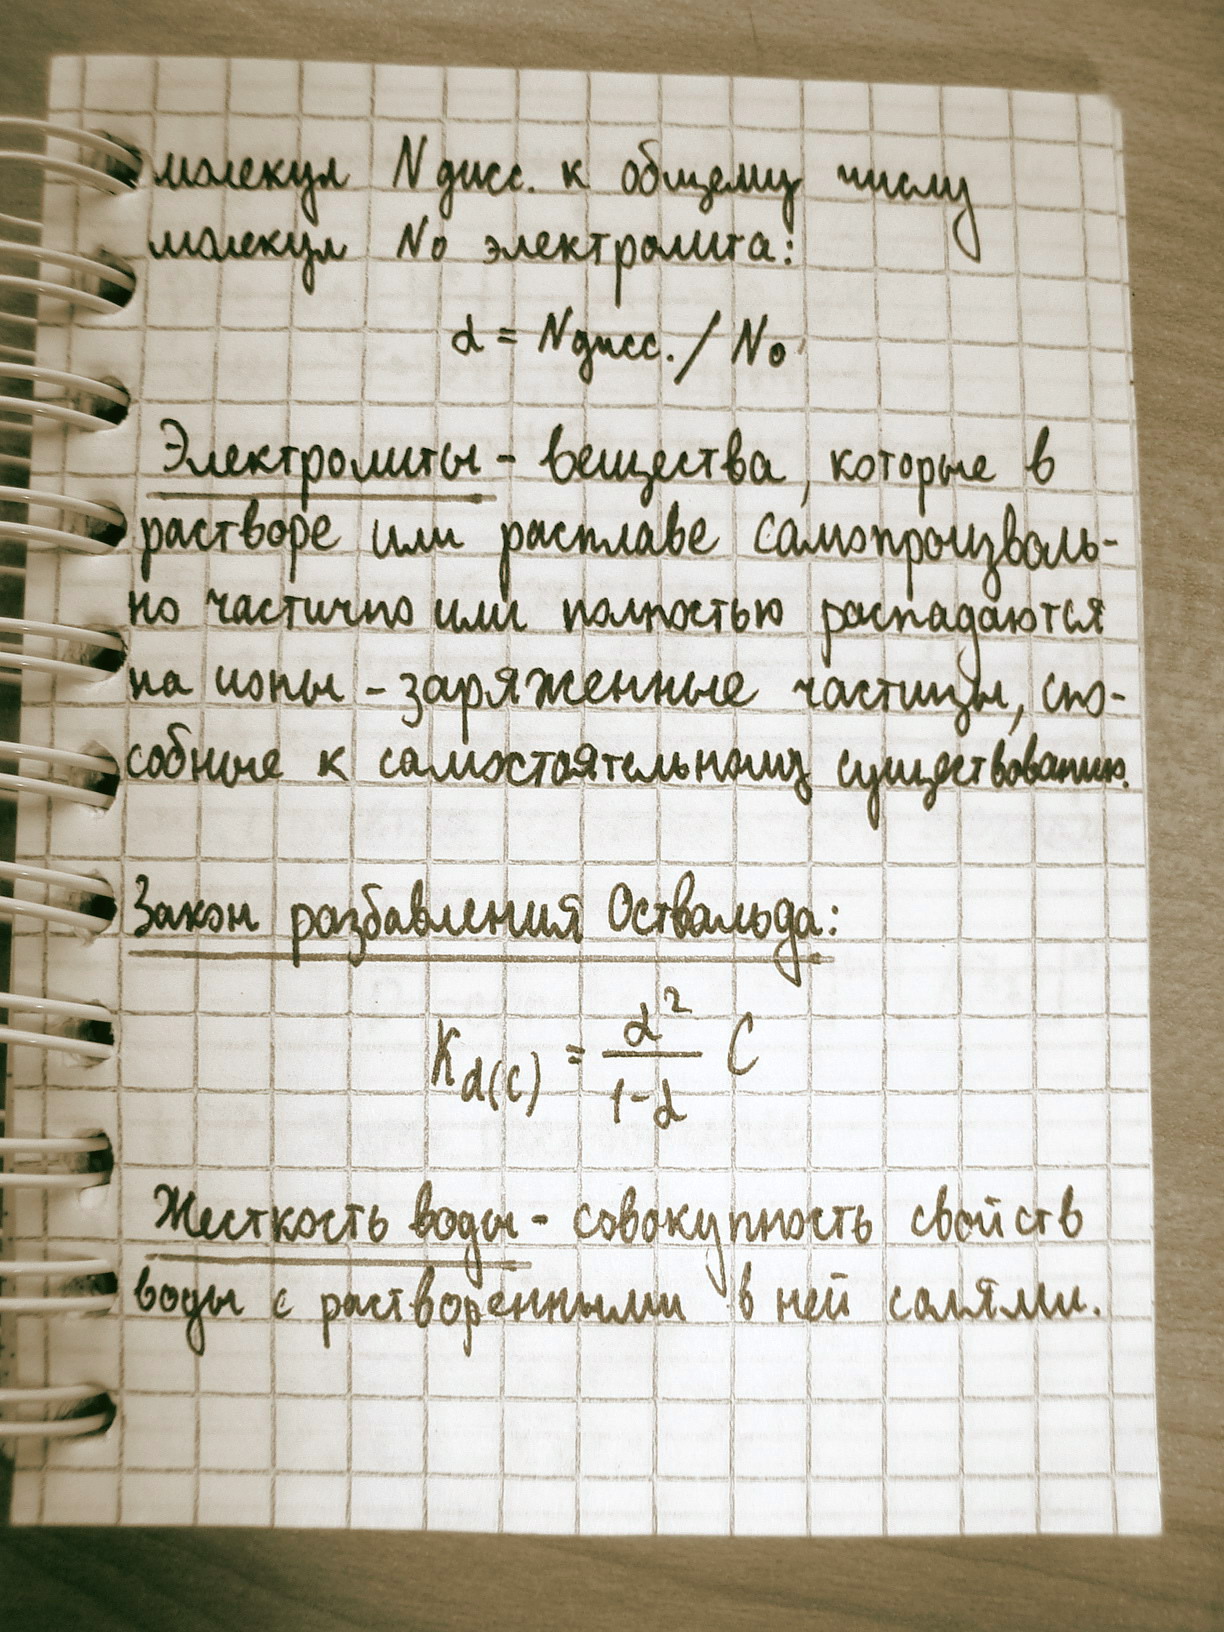 молекул N дисс. к общему числу
молекул N₀ электролита:
α = Nдисс. / N₀
Электролиты - вещества, которые в
растворе или расплаве самопроизволь-
но частично или полностью распадаются
на ионы - заряженные частицы, спо-
собные к самостоятельному существованию.
Закон разбавления Оствальда:
K d(c) = α² / 1-α C
Жесткость воды - совокупность свойств
воды с растворенными в ней солями.